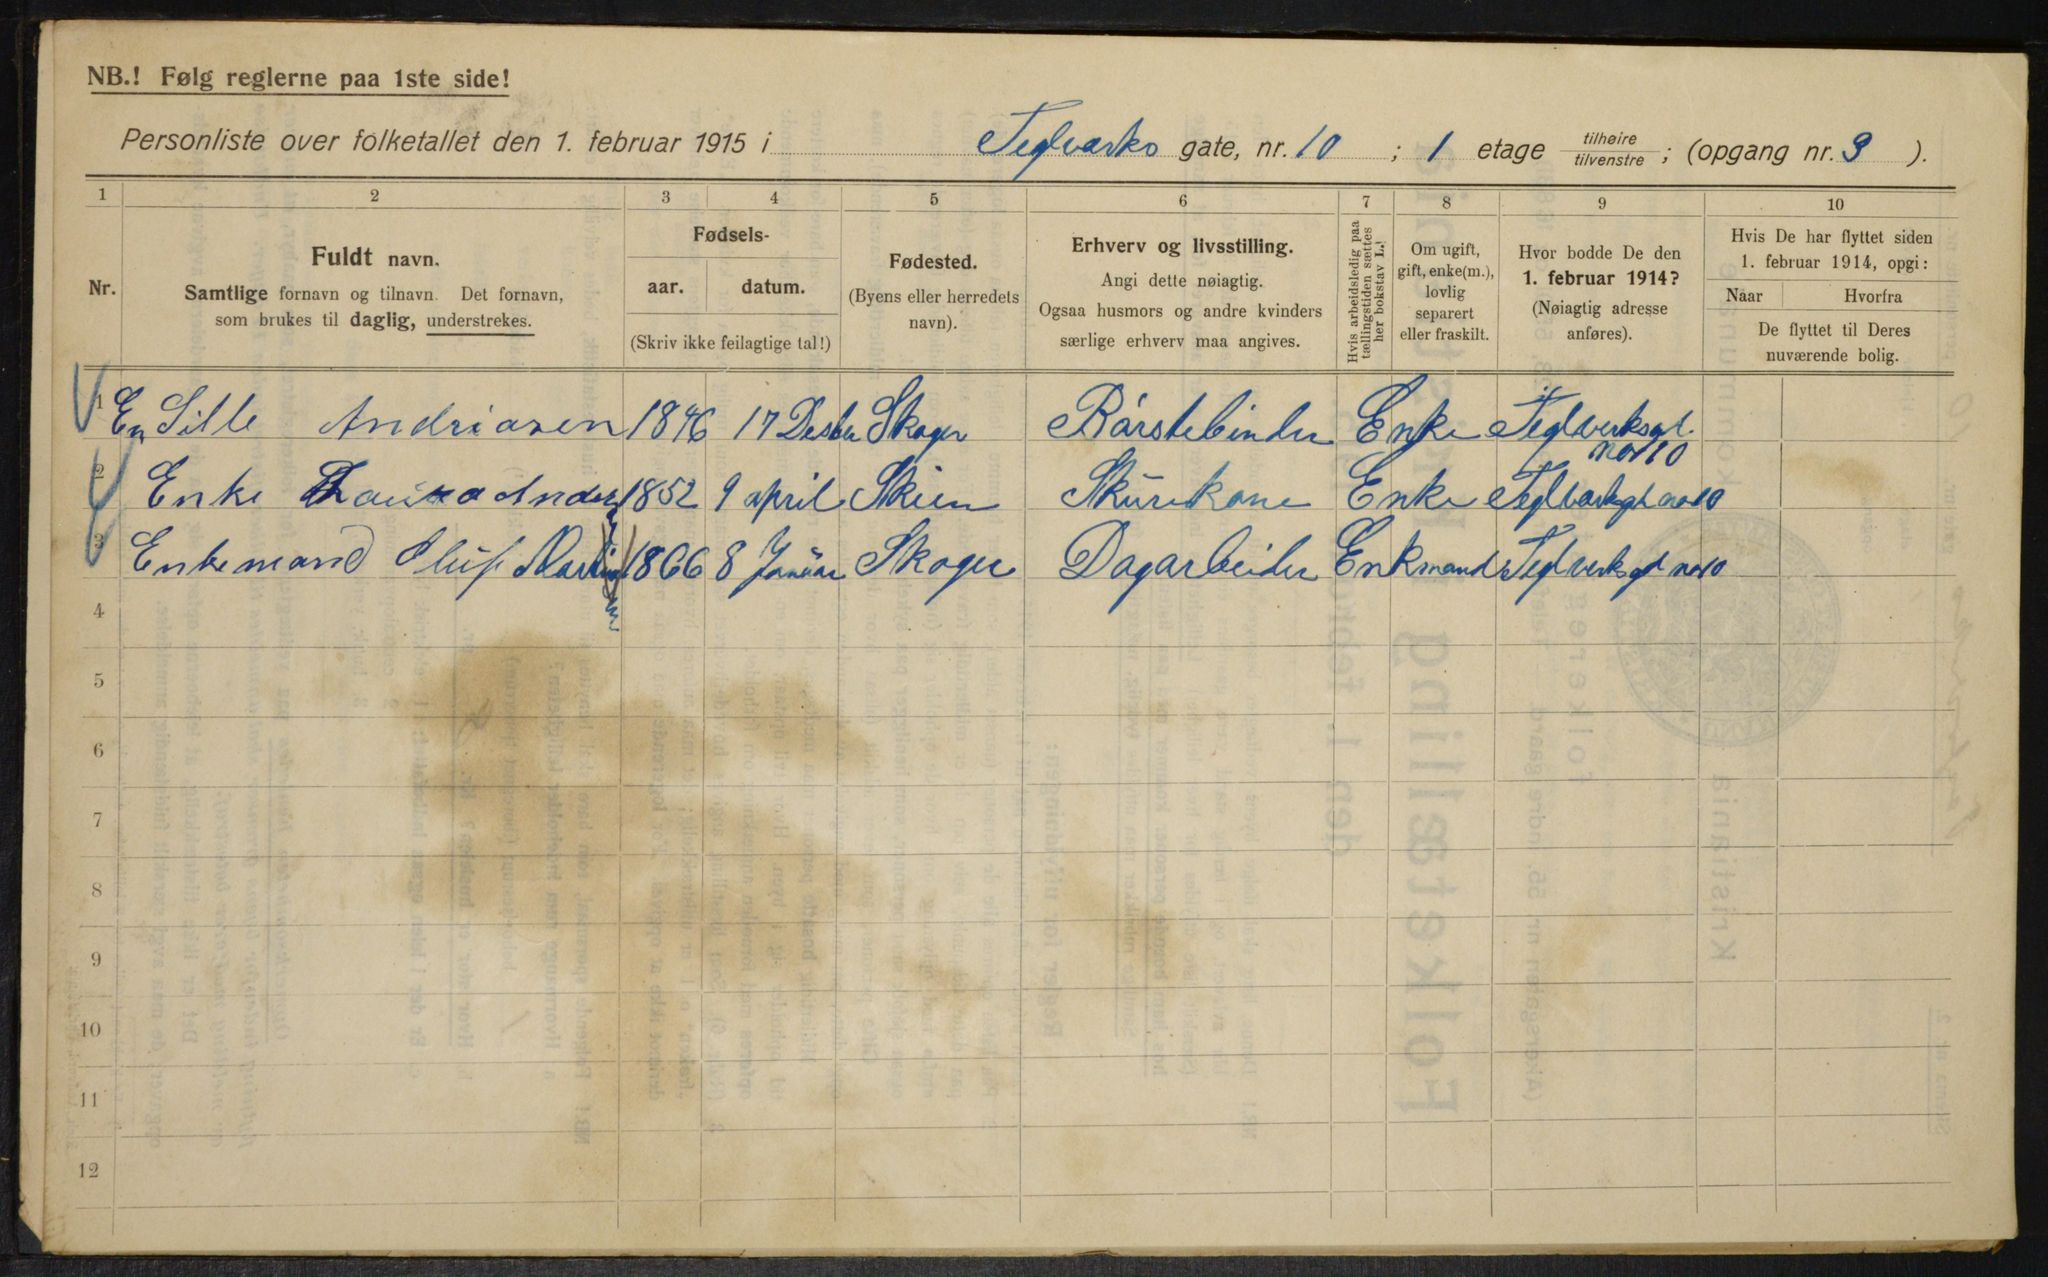 NB.! Følg reglerne paa 1ste side!
Personliste over folketallet den 1. februar 1915 i Teglverks gate, nr. 10 ; 1 etage tilhøire/tilvenstre ; (opgang nr. 3 ).
1 2 3 4 5 6 7 8 9 10
Nr.
Fuldt navn.
Samtlige fornavn og tilnavn. Det fornavn,
som brukes til daglig, understrekes.
Fødsels-
aar. datum.
(Skriv ikke feilagtige tal!)
Fødested.
(Byens eller herredets
navn).
Erhverv og livsstilling.
Angi dette nøiagtig.
Ogsaa husmors og andre kvinders
særlige erhverv maa angives.
Hvis arbeidsledig paa
tællingstiden sættes
her bokstav L.!
Om ugift,
gift, enke(m.),
lovlig
separert
eller fraskilt.
Hvor bodde De den
1. februar 1914?
(Nøiagtig adresse
anføres).
Hvis De har flyttet siden
1. februar 1914, opgi:
Naar Hvorfra
De flyttet til Deres
nuværende bolig.
1 En Sille Andriasen 1846 17 Desber Skoger Børstebinder Enke Teglverksgt.
no 10
2 Enke 1852 9 april Skien Skurekone Enke Teglverksgt no 10
3 Enkemand Oluf Martin 1866 8 Januar Skoger Dagarbeider Enkmand Teglverksgt no 10
4
5
6
7
8
9
10
11
12